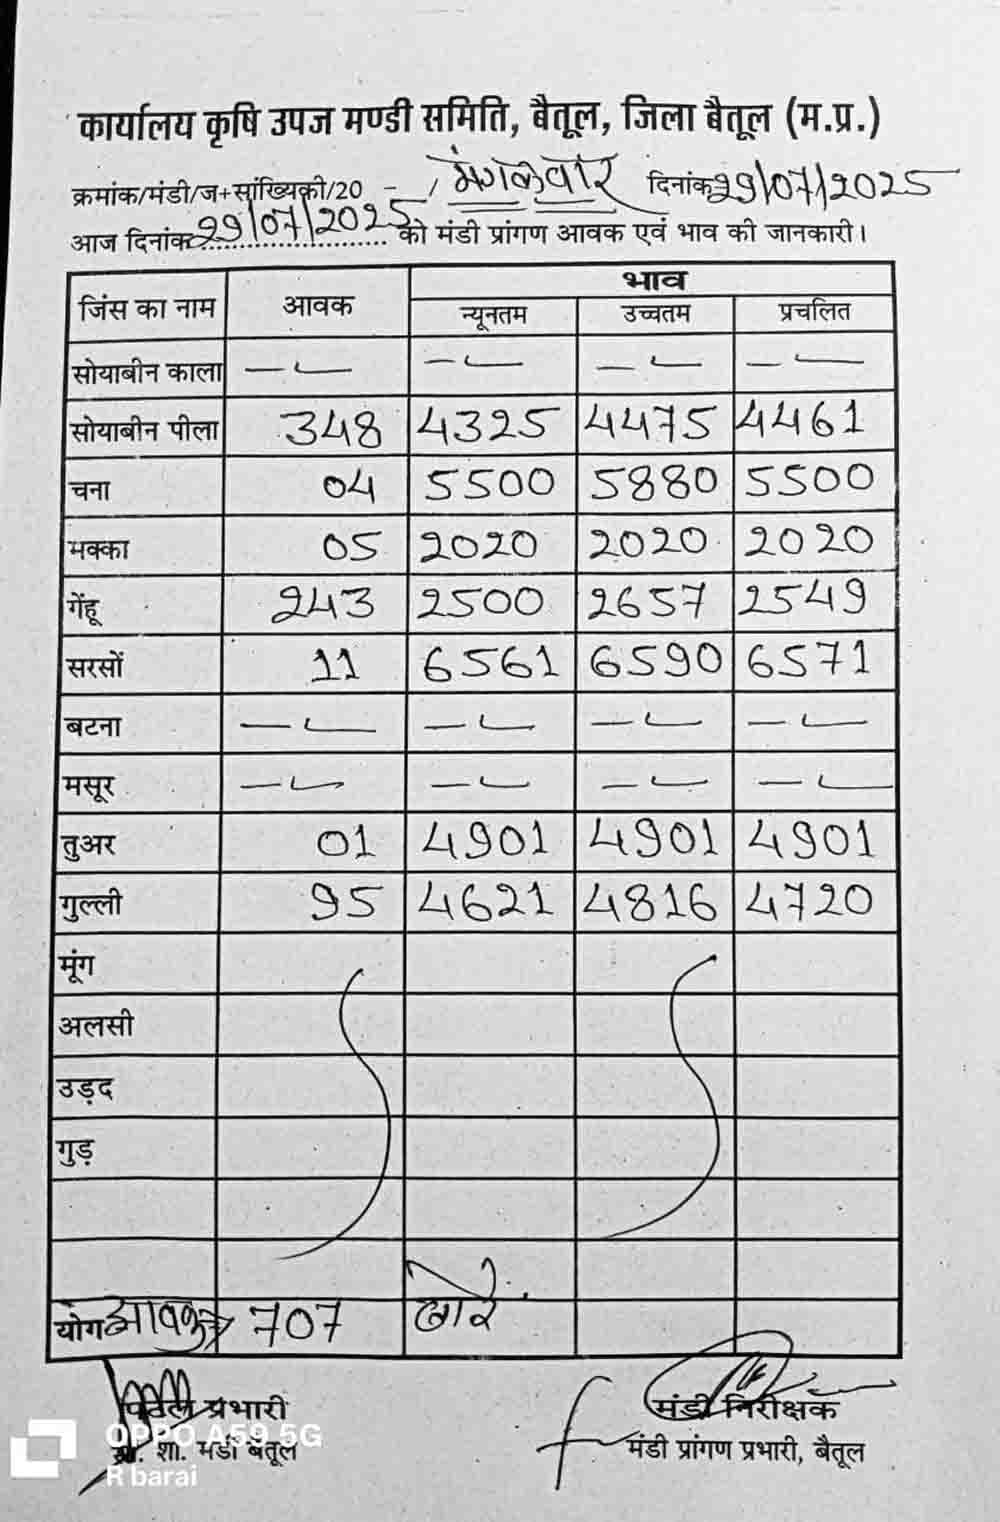 कार्यालय कृषि उपज मण्डी समिति, बैतूल, जिला बैतूल (म.प्र.)
क्रमांक/मंडी/ज+सांख्यिकी/20 - / मंगलवार दिनांक 29/07/2025
आज दिनांक 29/07/2025 को मंडी प्रांगण आवक एवं भाव की जानकारी।
जिंस का नाम आवक भाव
न्यूनतम उच्चतम प्रचलित
सोयाबीन काला — — — — — — — —
सोयाबीन पीला 348 4325 4475 4461
चना 04 5500 5880 5500
मक्का 05 2020 2020 2020
गेंहू 243 2500 2657 2549
सरसों 11 6561 6590 6571
बटना — — — — — — — —
मसूर — — — — — — — —
तुअर 01 4901 4901 4901
गुल्ली 95 4621 4816 4720
मूंग
अलसी
उड़द
गुड़
योग आवक 707 बोरे
प्रभारी
मंडी निरीक्षक
शा. मंडी बैतूल
मंडी प्रांगण प्रभारी, बैतूल
OPPO A59 5G
R barai